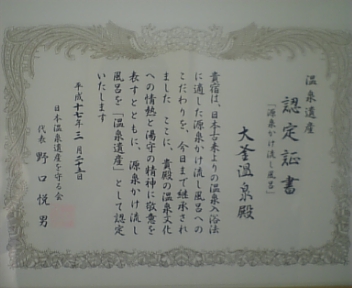 温泉遺産
認定証書
「源泉かけ流し風呂」
大釜温泉殿
貴宿は、日本古来よりの温泉入浴法
に適した源泉かけ流し風呂への
こだわりを、今日まで継承され
ました ここに、貴殿の温泉文化
への情熱と湯守の精神に敬意を
表すとともに、源泉かけ流し
風呂を「温泉遺産」として認定
いたします
平成十七年三月二十五日
日本温泉遺産を守る会
代表 野口悦男